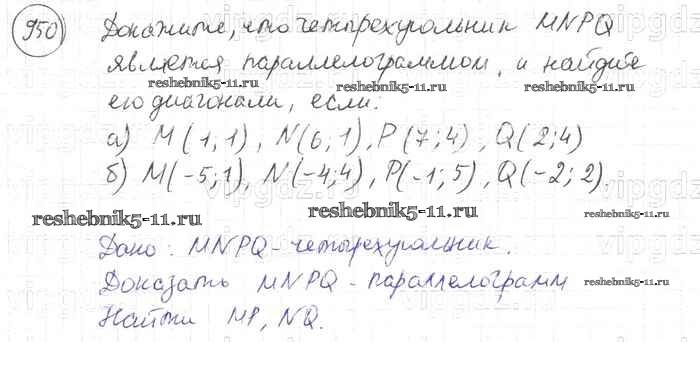 950) Докажите, что четырехугольник MNPQ
является параллелограммом, и найдите
reshebnik5-11.ru reshebnik5-11.ru
его диагонали, если:
а) M(1;1), N(6;1), P(7;4), Q(2;4)
б) M(-5;1), N(-4;4), P(-1;5), Q(-2;2).
reshebnik5-11.ru reshebnik5-11.ru reshebnik5-11.ru
Дано: MNPQ - четырехугольник.
Доказать MNPQ - параллелограмм
reshebnik5-11.ru
Найти MP, NQ.